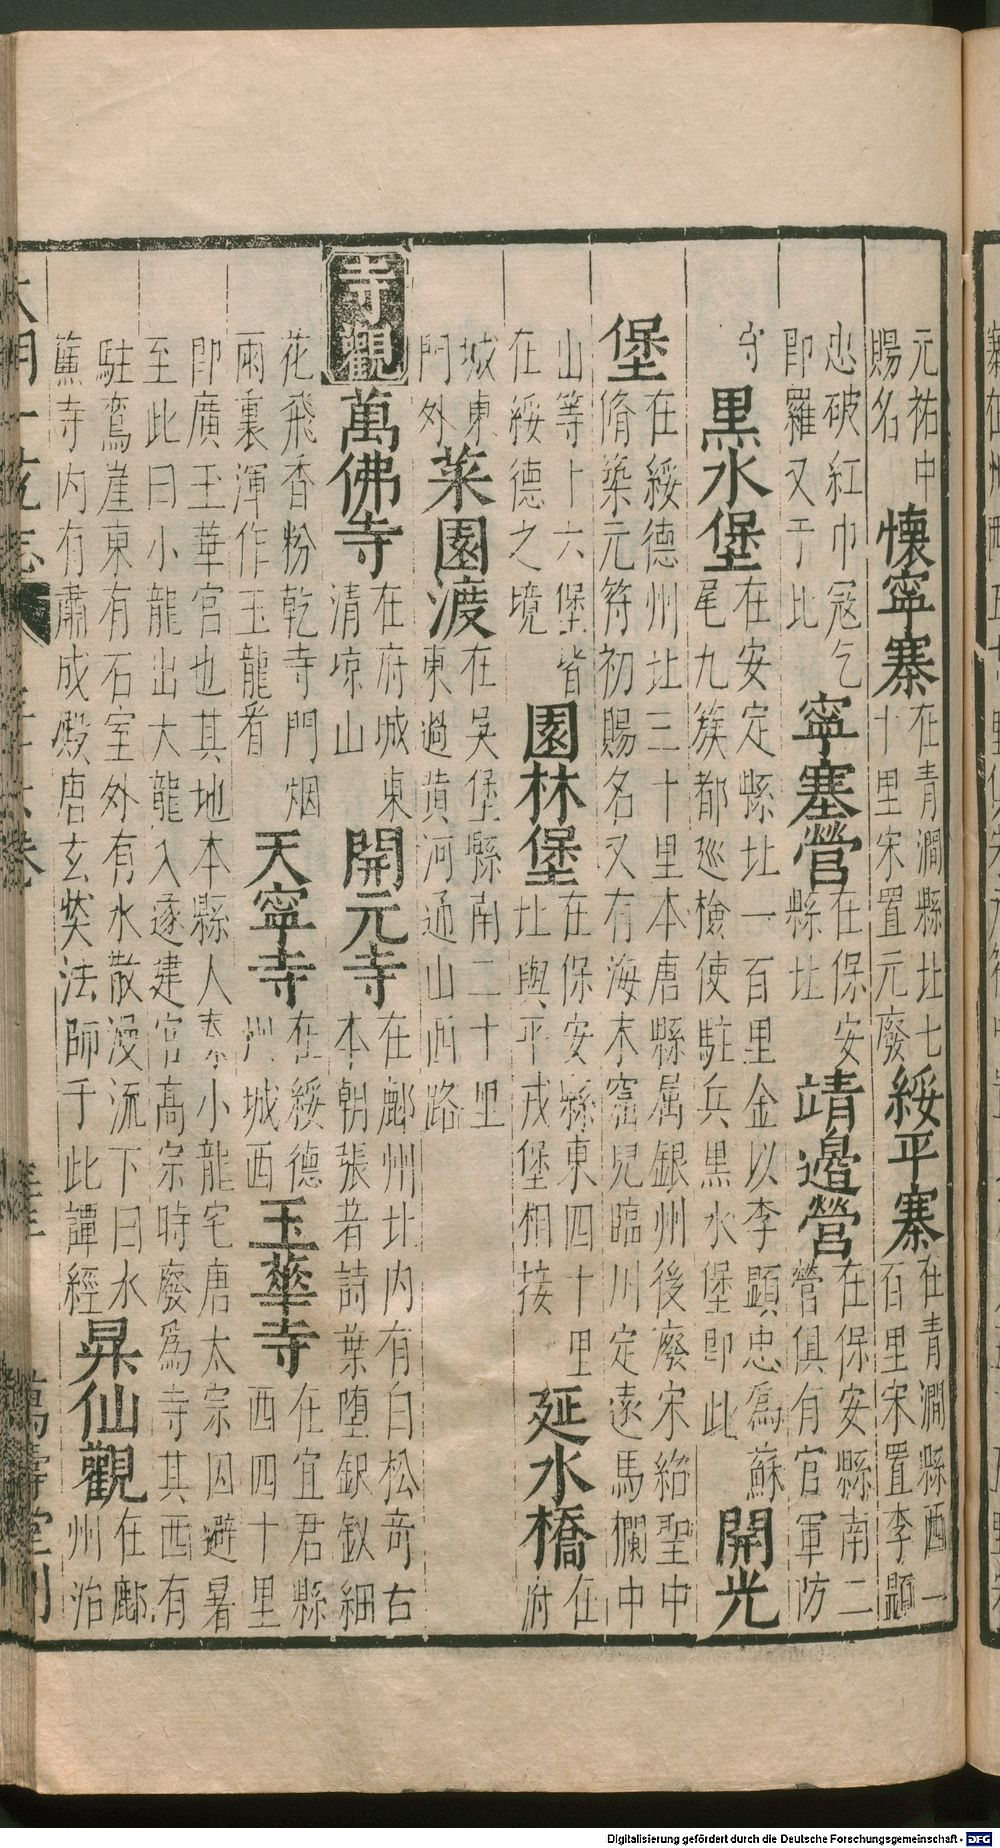 元祐中賜名懷寧寨在青澗縣北七十里宋置元廢綏平寨在青澗縣西一百里宋置李顯
忠破紅巾冦乞即羅又于比寧塞營在保安縣北靖邊營在保安縣南二營俱有官軍防
守黑水堡在安定縣北一百里金以李顯忠為蘇尾九簇都廵檢使駐兵黑水堡即此開光
堡在綏德州北三十里本唐縣属銀州後廢宋紹聖中脩築元符初賜名又有海末窟兒臨川定遠馬欄中
山等十六堡皆在綏德之境園林堡在保安縣東四十里北與平戎堡相接延水橋在府
城東門外菜園渡在吴堡縣南二十里東過黄河通山西路
寺觀萬佛寺在府城東清凉山開元寺在鄜州北内有白松竒右本朝張者詩葉堕銀釵細
花飛香粉乾寺門烟雨裏渾作玉龍看天寧寺在綏德州城西玉華寺在宜君縣西四十里
即廣玉華宮也其地本縣人秦小龍宅唐太宗因避暑至此曰小龍出大龍入遂建宮高宗時廢為寺其西有
駐鸞崖東有石室外有水散漫流下曰水簾寺内有肅成殿唐玄奘法師于此譯經杲仙觀在鄜州治
萬壽堂刊
Digitalisierung gefördert durch die Deutsche Forschungsgemeinschaft - DFG